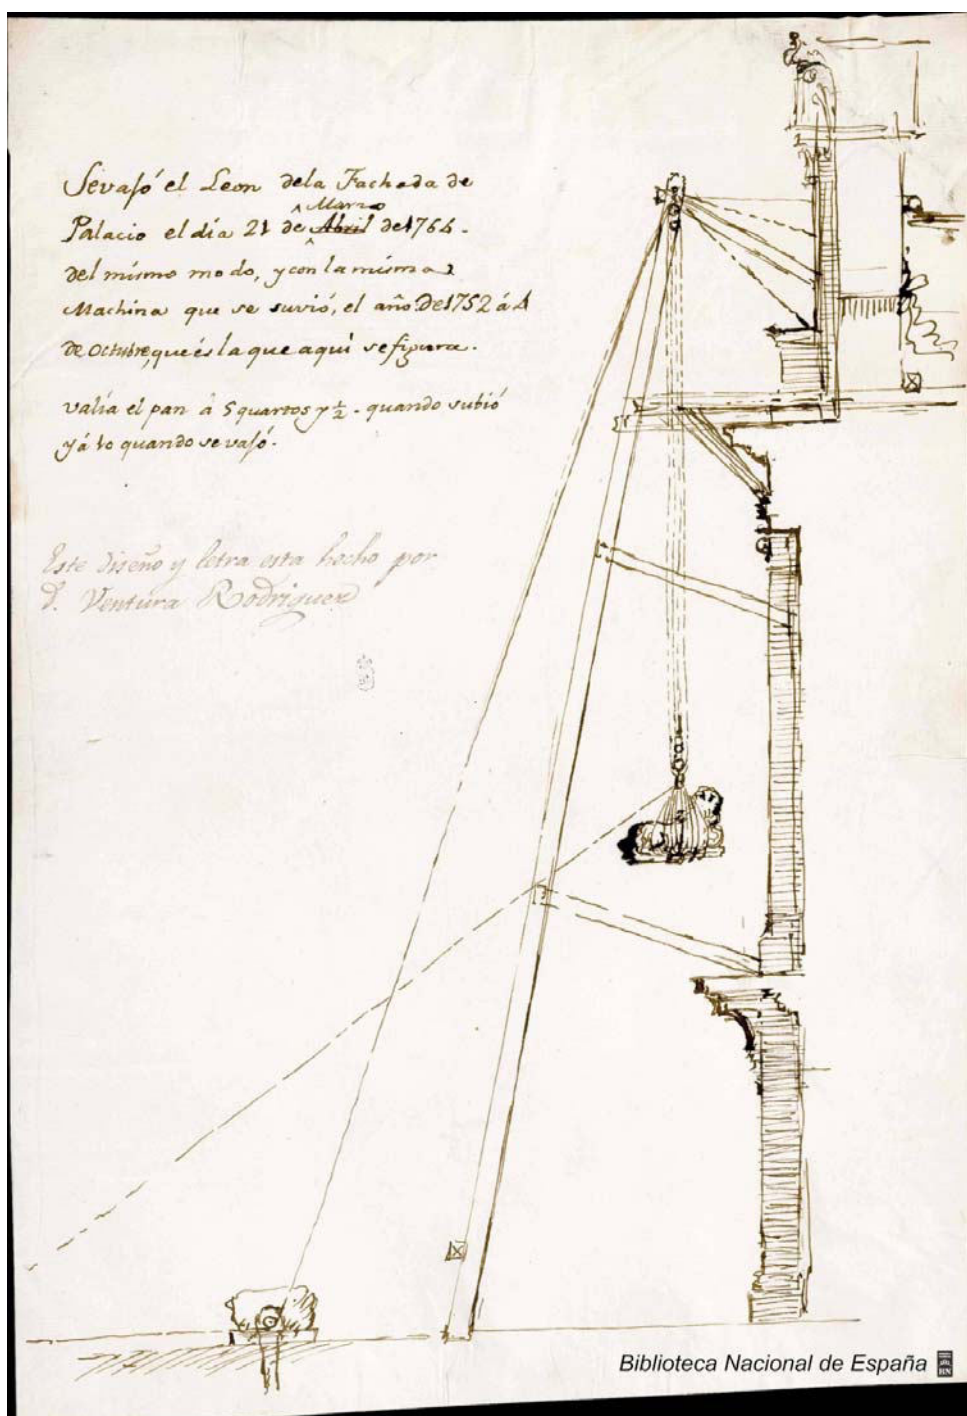 Sevajó el Leon dela Fachada de
Marzo
Palacio el día 21 de ^ Abril de 1764.
del mismo modo, y con la misma
Machina que se suvió, el año De 1752 á 4
de Octubre, que és la que aqui se figura.
valía el pan á 5 quartos y ½. quando subió
y á 10 quando se vajó.
Este diseño y letra esta hecho por
D. Ventura Rodriguez
Biblioteca Nacional de España